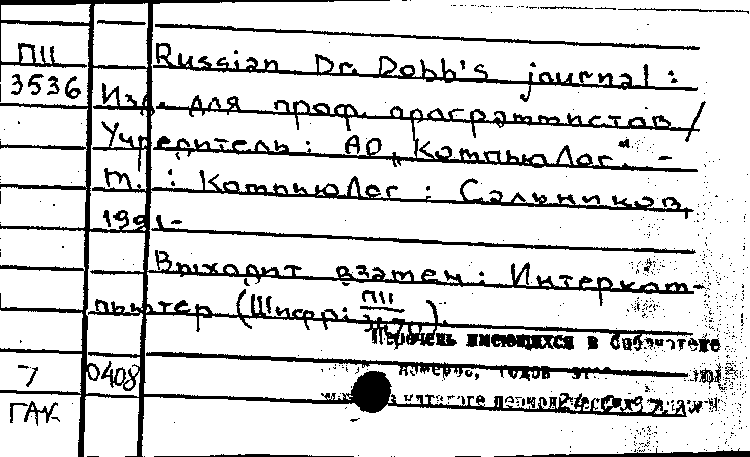 П11 Russian Dr. Dobb's journal :
3536 Изд. для проф. программистов /
Учредитель : АО „КомпьюЛог". -
М. : КомпьюЛог : Сальников,
1991-
Выходит взамен: Интерком-
пьютер (Шифр: П11
Перечень имеющихся в библиотеке
7 0408 номеров, годов
в каталоге
ГАК